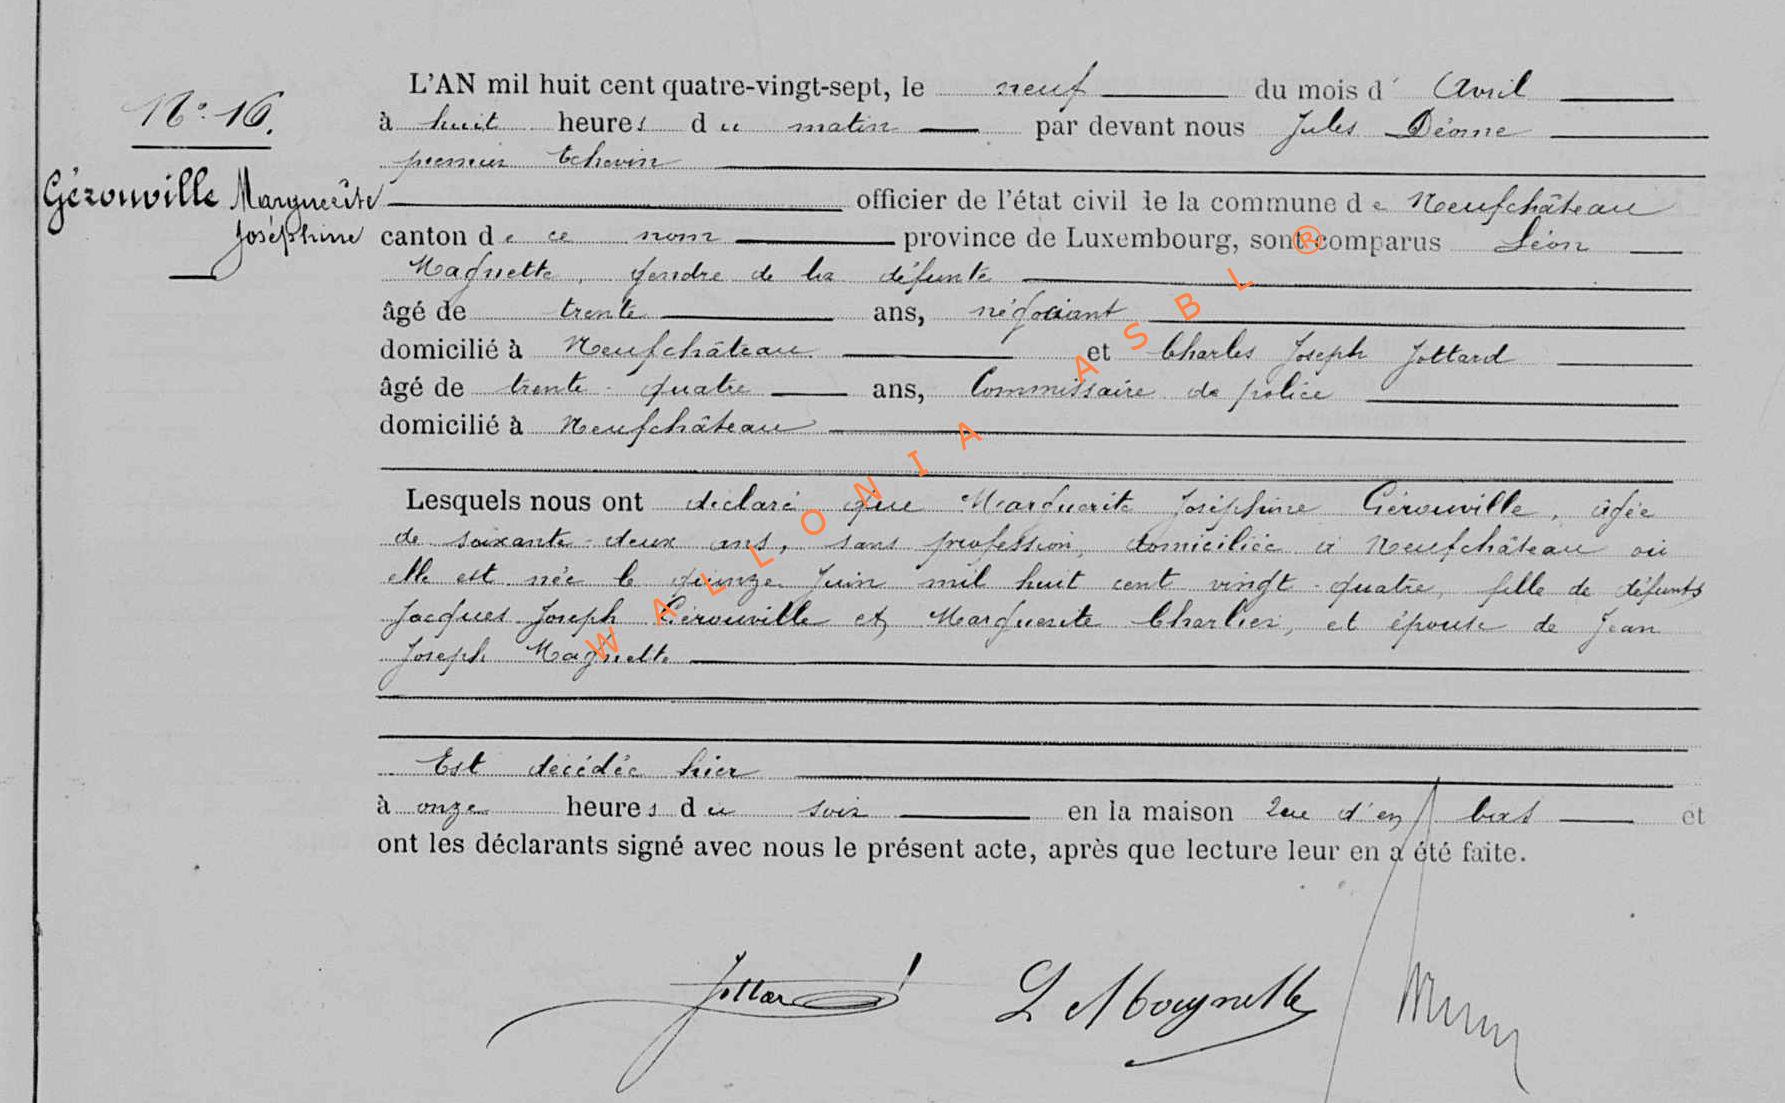 N° 16.
Gérouville Marguerite
Joséphine
L'AN mil huit cent quatre-vingt-sept, le neuf du mois d' Avril
à huit heures du matin par devant nous Jules Déome
premier Echevin
officier de l'état civil de la commune de Neufchâteau
canton de ce nom province de Luxembourg, sont comparus Léon
Magnette, gendre de la défunte
âgé de trente ans, négociant
domicilié à Neufchâteau et Charles Joseph Jottard
âgé de trente-quatre ans, Commissaire de police
domicilié à Neufchâteau
Lesquels nous ont déclaré que Marguerite Joséphine Gérouville, âgée
de soixante-deux ans, sans profession, domiciliée à Neufchâteau où
elle est née le quinze Juin mil huit cent vingt-quatre, fille de défunts
Jacques Joseph Gérouville et Marguerite Charlier, et épouse de Jean
Joseph Magnette
Est décédée hier
à onze heures du soir en la maison rue d'en bas et
ont les déclarants signé avec nous le présent acte, après que lecture leur en a été faite.
Jottard L Magnette
WALLONIA ASBL ®